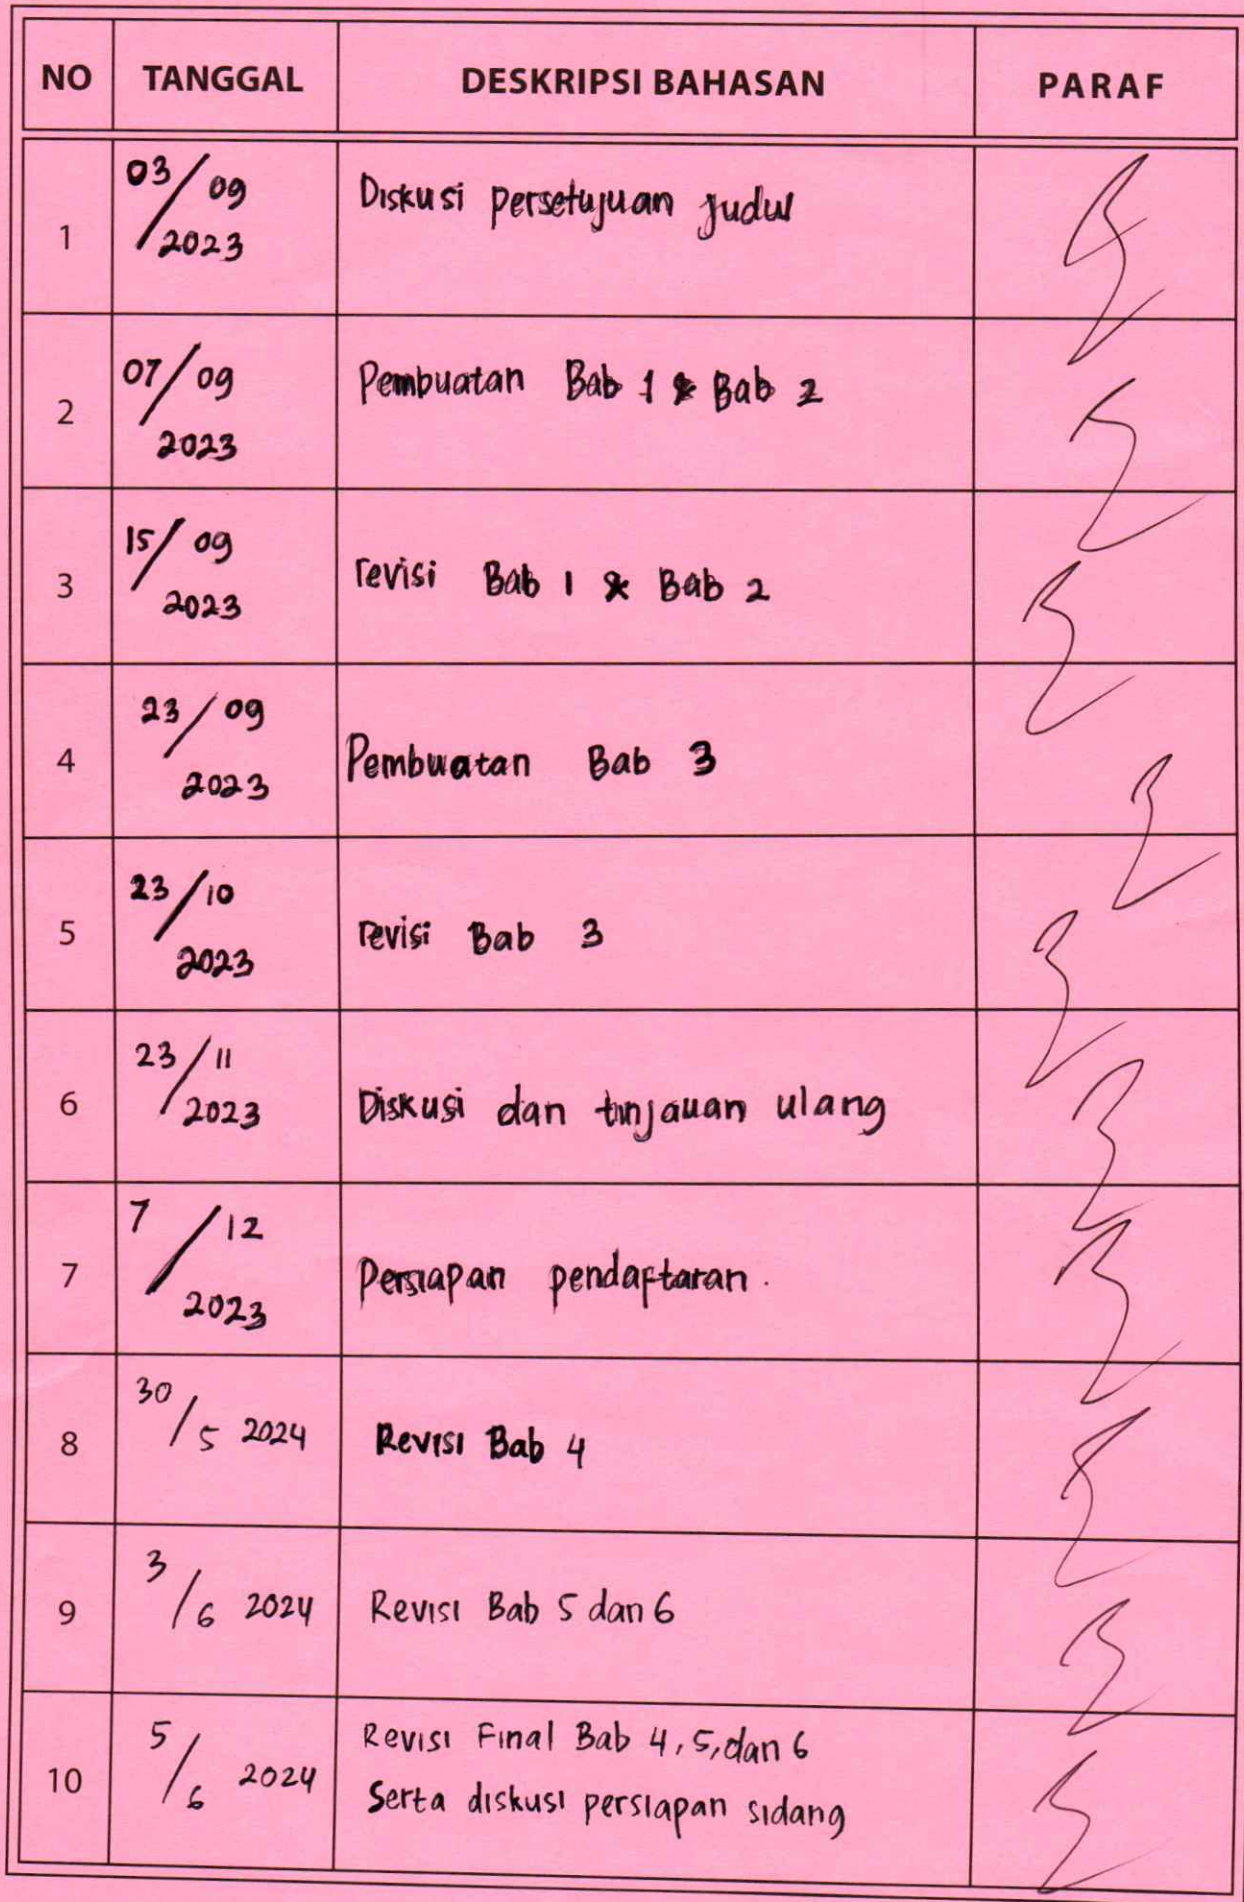 NO TANGGAL DESKRIPSI BAHASAN PARAF
1 03/09 2023 Diskusi persetujuan judul
2 07/09 2023 Pembuatan Bab 1 & Bab 2
3 15/09 2023 revisi Bab 1 & Bab 2
4 23/09 2023 Pembuatan Bab 3
5 23/10 2023 revisi Bab 3
6 23/11 2023 Diskusi dan tinjauan ulang
7 7/12 2023 Persiapan pendaftaran.
8 30/5 2024 Revisi Bab 4
9 3/6 2024 Revisi Bab 5 dan 6
10 5/6 2024 Revisi Final Bab 4, 5, dan 6
Serta diskusi persiapan sidang